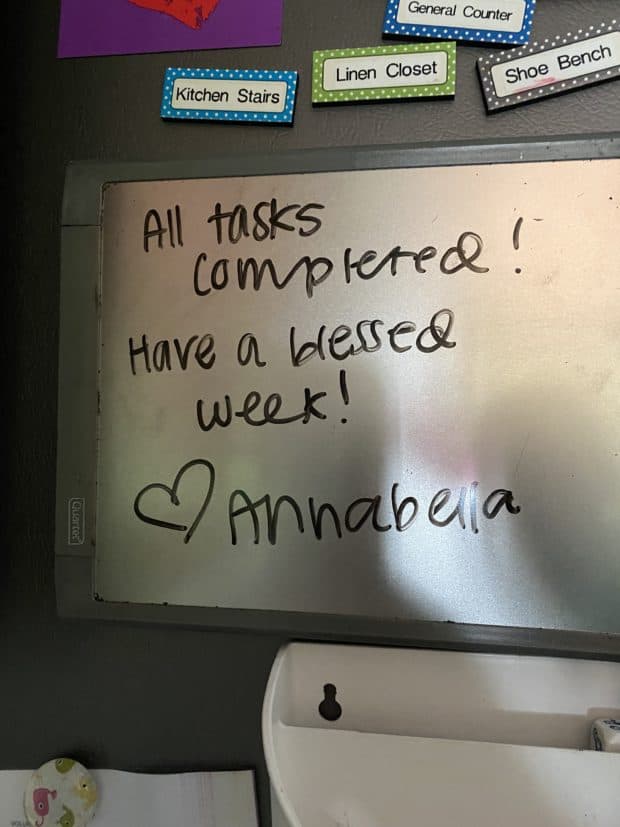 General Counter
Linen Closet
Shoe Bench
Kitchen Stairs
All tasks
completed!
Have a blessed
week!
♡ Annabella
Quartet